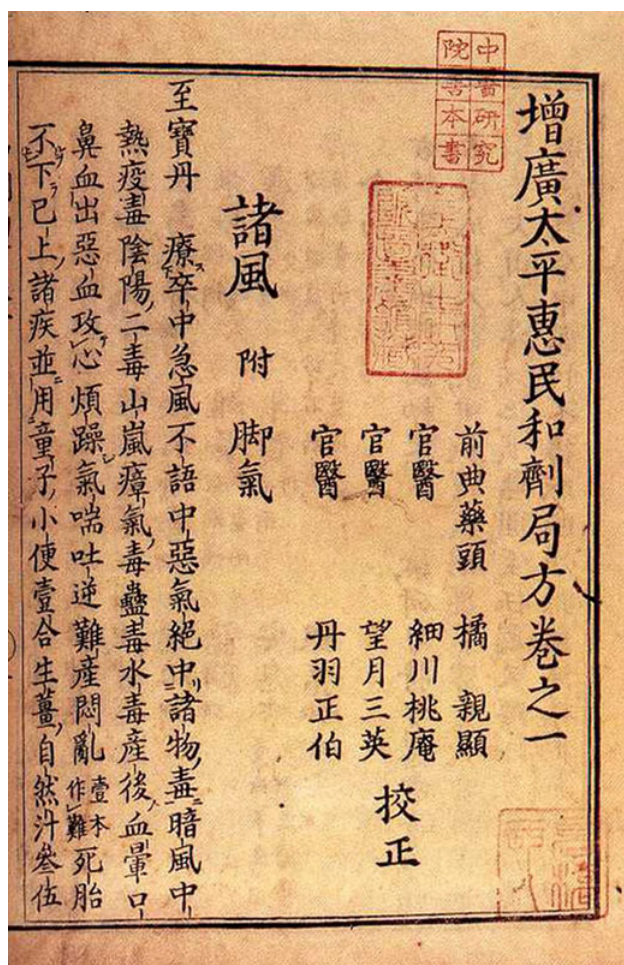 增廣太平惠民和劑局方卷之一
前典藥頭 橘 親顯
官醫 細川桃庵
官醫 望月三英
官醫 丹羽正伯
校正
諸風 附 脚氣
至寶丹 療卒中急風不語中惡氣絕中諸物毒暗風中
熱疫毒陰陽二毒山嵐瘴氣毒蠱毒水毒產後血暈口
鼻血出惡血攻心煩躁氣喘吐逆難產悶亂壹本作難死胎
不下已上諸疾並用童子小便壹合生薑自然汁叄伍
中醫研究
院善本書